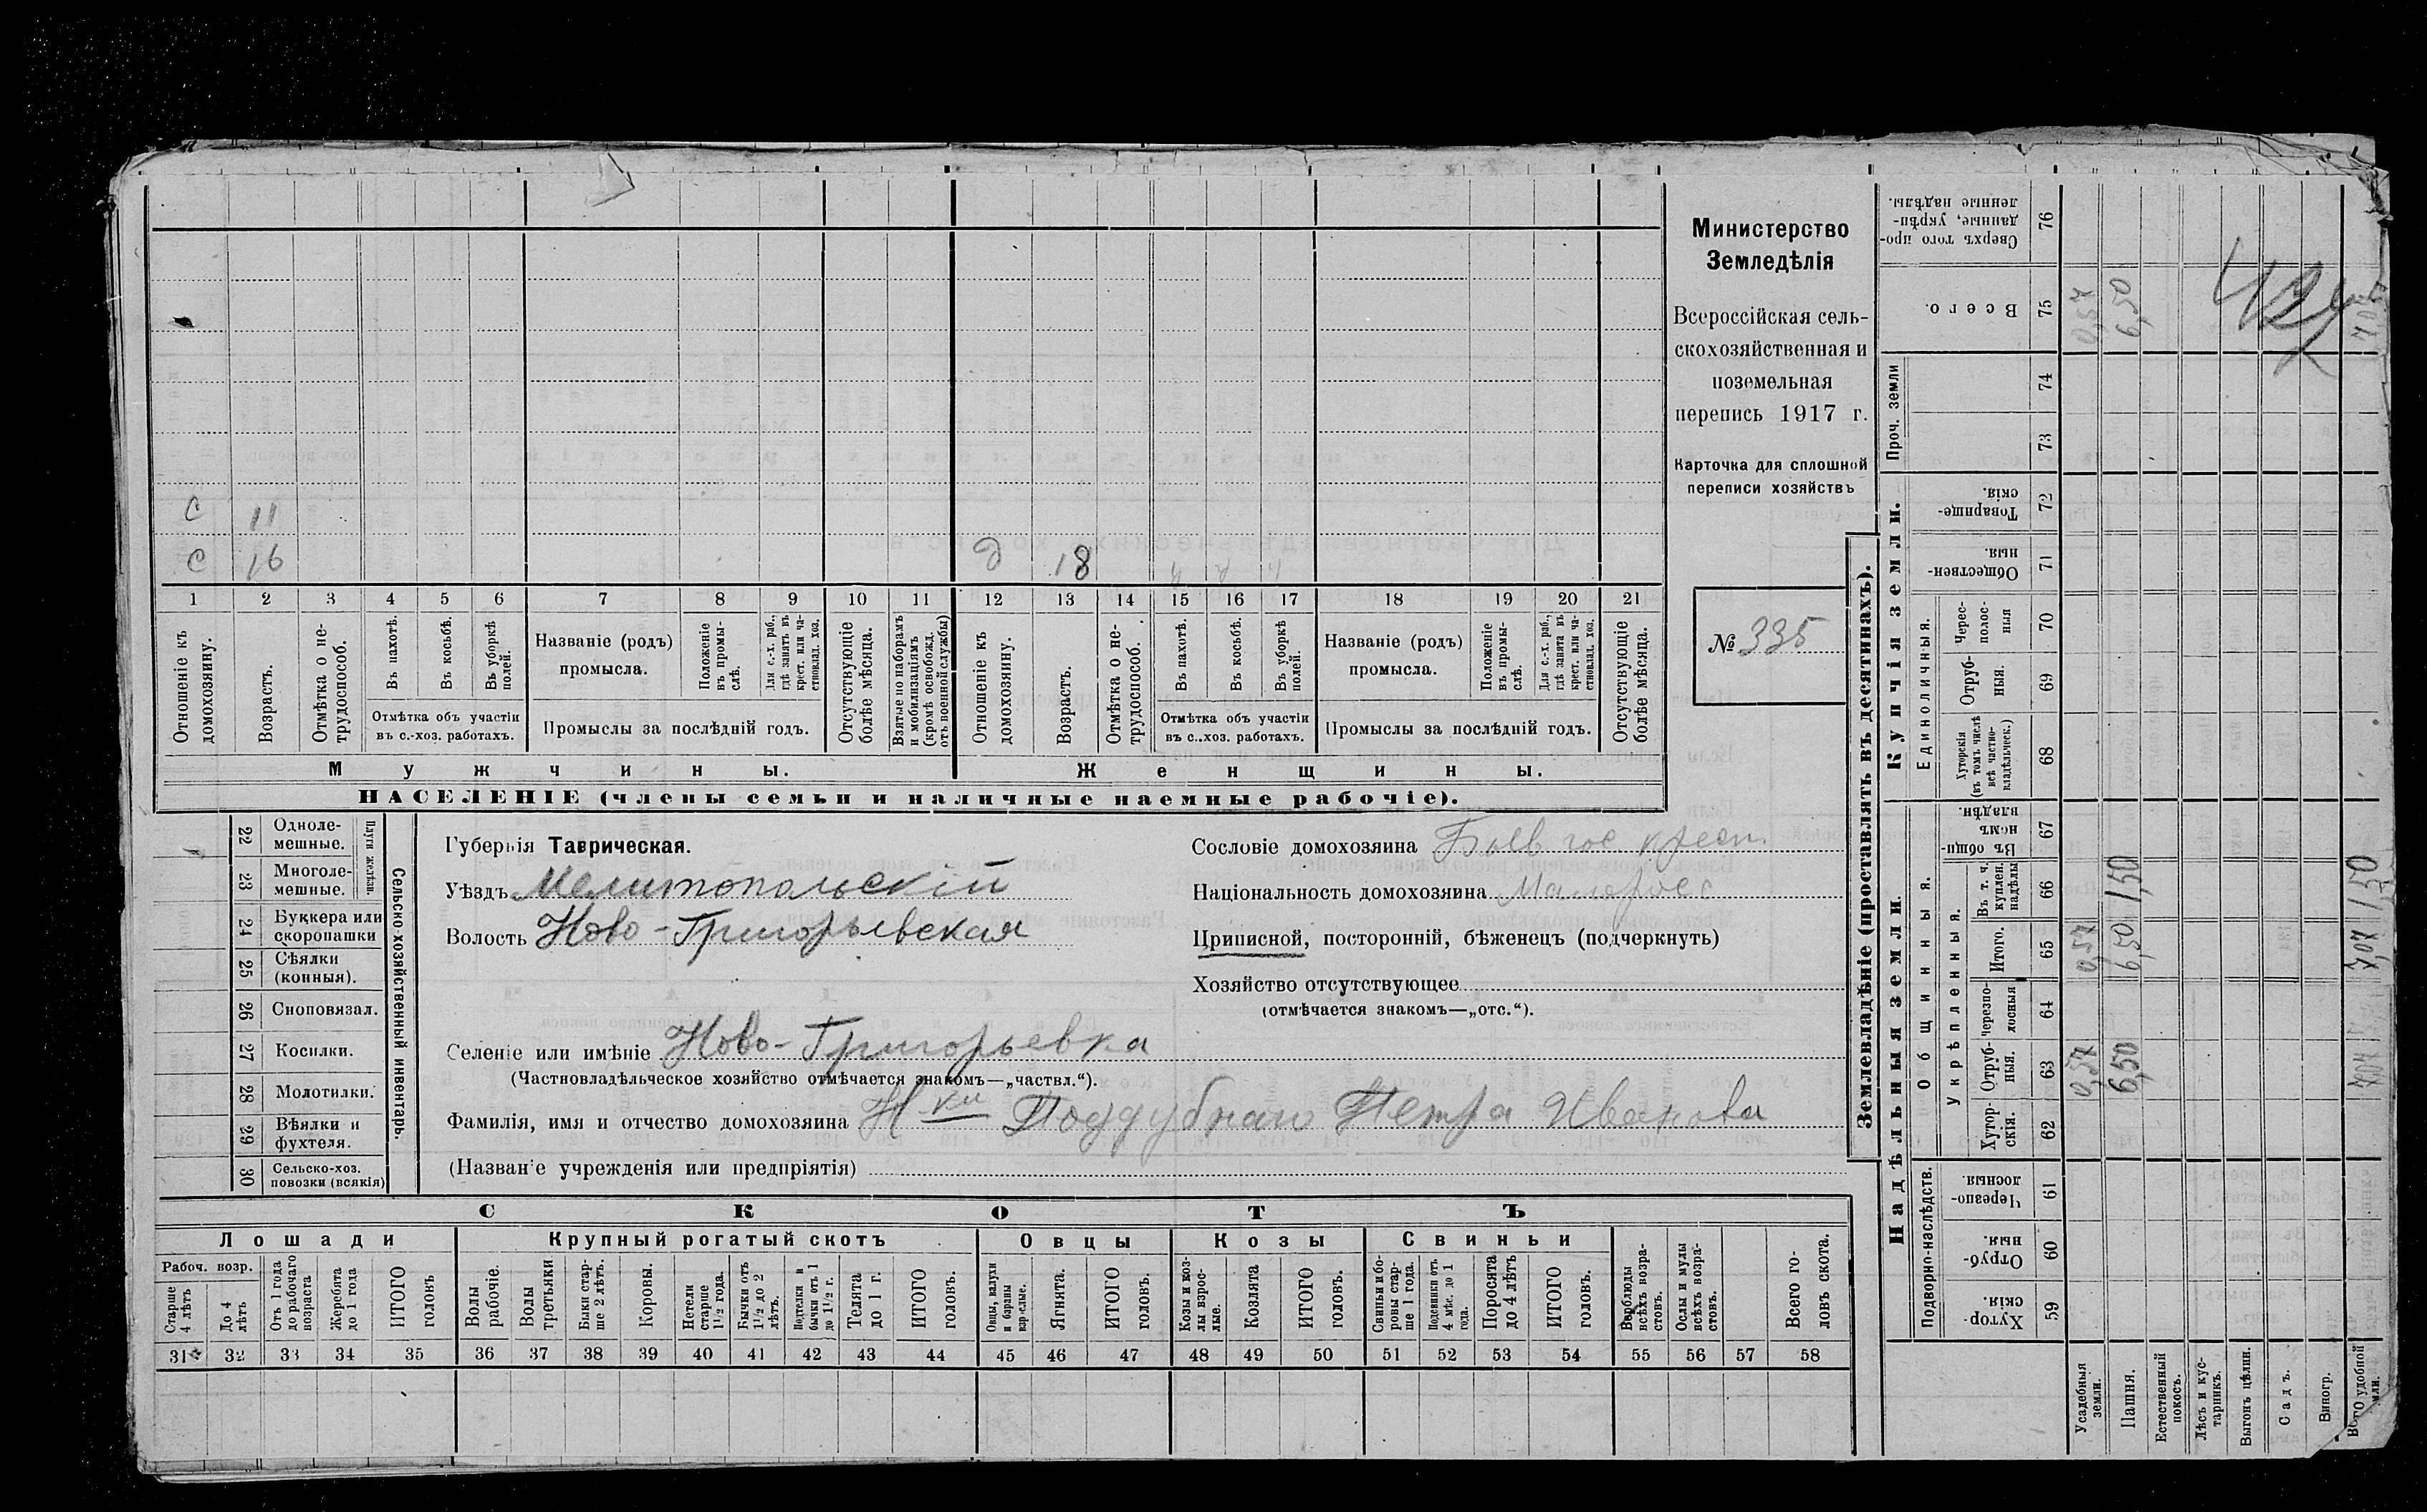 Министерство
Земледѣлія
Всероссійская сель-
скохозяйственная и
поземельная
перепись 1917 г.
Карточка для сплошной
переписи хозяйствъ
№ 335
с 11
с 16 д 18
1 2 3 4 5 6 7 8 9 10 11 12 13 14 15 16 17 18 19 20 21
Отношеніе къ домохозяину.
Возрастъ.
Отмѣтка о не-трудоспособ.
Въ пахотѣ.
Въ косьбѣ.
Въ уборкѣ полей.
Отмѣтка объ участіи
въ с.-хоз. работахъ.
Названіе (родъ)
промысла.
Положеніе въ промы-слѣ.
Для с.-х. раб., гдѣ занятъ въ крест. или ча-стновлад. хоз.
Промыслы за послѣдній годъ.
Отсутствующіе болѣе мѣсяца.
Взятые по наборамъ и мобилизаціямъ (кромѣ освобожд. отъ военной службы)
Отношеніе къ домохозяину.
Возрастъ.
Отмѣтка о не-трудоспособ.
Въ пахотѣ.
Въ косьбѣ.
Въ уборкѣ полей.
Отмѣтка объ участіи
въ с.-хоз. работахъ.
Названіе (родъ)
промысла.
Положеніе въ промы-слѣ.
Для с.-х. раб., гдѣ занята въ крест. или ча-стновлад. хоз.
Промыслы за послѣдній годъ.
Отсутствующіе болѣе мѣсяца.
Мужчины. Женщины.
НАСЕЛЕНІЕ (члены семьи и наличные наемные рабочіе).
22 Одноле-мешные.
23 Многоле-мешные.
24 Буккера или скоропашки
25 Сѣялки (конныя).
26 Сноповязал.
27 Косилки.
28 Молотилки.
29 Вѣялки и фухтеля.
30 Сельско-хоз. повозки (всякія)
Сельско-хозяйственный инвентарь.
Губернія Таврическая.
Уѣздъ Мелитопольскій
Волость Ново-Григорьевская
Селеніе или имѣніе Ново-Григорьевка
(Частновладѣльческое хозяйство отмѣчается знакомъ—„частвл.“).
Фамилія, имя и отчество домохозяина Н-ки Поддубнаго Петра Иванова
(Названіе учрежденія или предпріятія)
Сословіе домохозяина Бывш гос крест
Національность домохозяина Малоросс
Приписной, посторонній, бѣженецъ (подчеркнуть)
Хозяйство отсутствующее
(отмѣчается знакомъ—„отс.“).
СКОТЪ
Лошади Крупный рогатый скотъ Овцы Козы Свиньи
Рабоч. возр.
Старше 4 лѣтъ
До 4 лѣтъ
Отъ 1 года до рабочаго возраста
Жеребята до 1 года
ИТОГО головъ
Волы рабочіе.
Волы третьяки
Быки стар-ше 2 лѣтъ.
Коровы.
Нетели старше 1 1/2 года.
Бычки отъ 1 1/2 до 2 лѣтъ.
Подтелки и бычки отъ 1 до 1 1/2 г.
Телята до 1 г.
ИТОГО головъ.
Овцы, валухи и бараны взрослые.
Ягнята.
ИТОГО головъ.
Козы и коз-лы взрос-лые.
Козлята
ИТОГО головъ.
Свиньи и бо-ровы стар-ше 1 года.
Подсвинки отъ 4 мѣс. до 1 года.
Поросята до 4 лѣтъ
ИТОГО головъ.
Верблюды всѣхъ возра-стовъ.
Ослы и мулы всѣхъ возра-стовъ.
Всего го-ловъ скота.
31 32 33 34 35 36 37 38 39 40 41 42 43 44 45 46 47 48 49 50 51 52 53 54 55 56 57 58
Землевладѣніе (проставлять въ десятинахъ).
Купчія земли.
Надѣльныя земли.
Проч. земли
Единоличныя.
Общинныя.
Укрѣпленныя.
Подворно-наслѣдств.
Сверхъ того про-данные, укрѣп-ленные надѣлы. 76
Всего. 75 0,57 6,50
74
73
Товарище-скія. 72
Обществен-ныя. 71
Черес-полос-ныя 70
Отруб-ныя. 69
Хуторскія (въ томъ числѣ всѣ частно-владѣльческ.) 68
Въ общин-номъ владѣн. 67
Въ т. ч. куплен. надѣлы 66 1,50 1,50
Итого. 65 0,57 6,50 7,07
черезпо-лосныя 64
Отруб-ныя. 63 0,57 6,50 7,07
Хутор-скія. 62
Черезпо-лосныя. 61
Отруб-ныя. 60
Хутор-скія. 59
Усадебныя земли.
Пашня.
Естественный покосъ.
Лѣсъ и кус-тарникъ.
Выгонъ цѣлин.
Садъ.
Виногр.
удобной